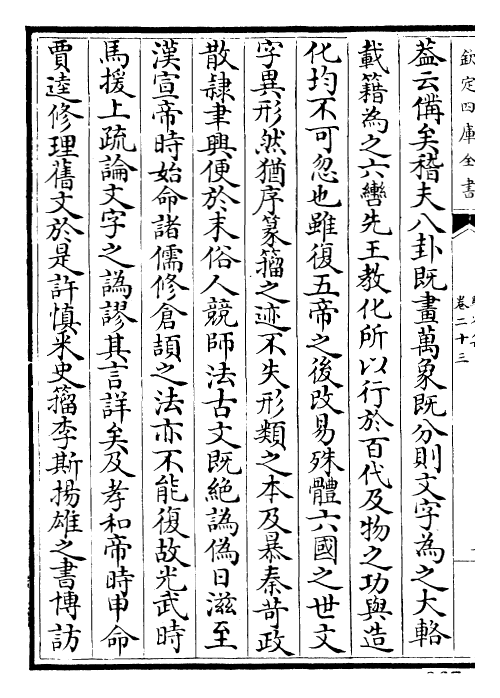 欽定四庫全書
卷二十三
蓋云備矣稽夫八卦既畫萬象既分則文字為之大輅
載籍為之六轡先王教化所以行於百代及物之功與造
化均不可忽也雖復五帝之後改易殊體六國之世文
字異形然猶序篆籀之迹不失形類之本及暴秦苛政
散隸聿興便於末俗人競師法古文既絶譌偽日滋至
漢宣帝時始命諸儒修倉頡之法亦不能復故光武時
馬援上疏論文字之譌謬其言詳矣及孝和帝時申命
賈逵修理舊文於是許慎米史籀李斯揚雄之書博訪